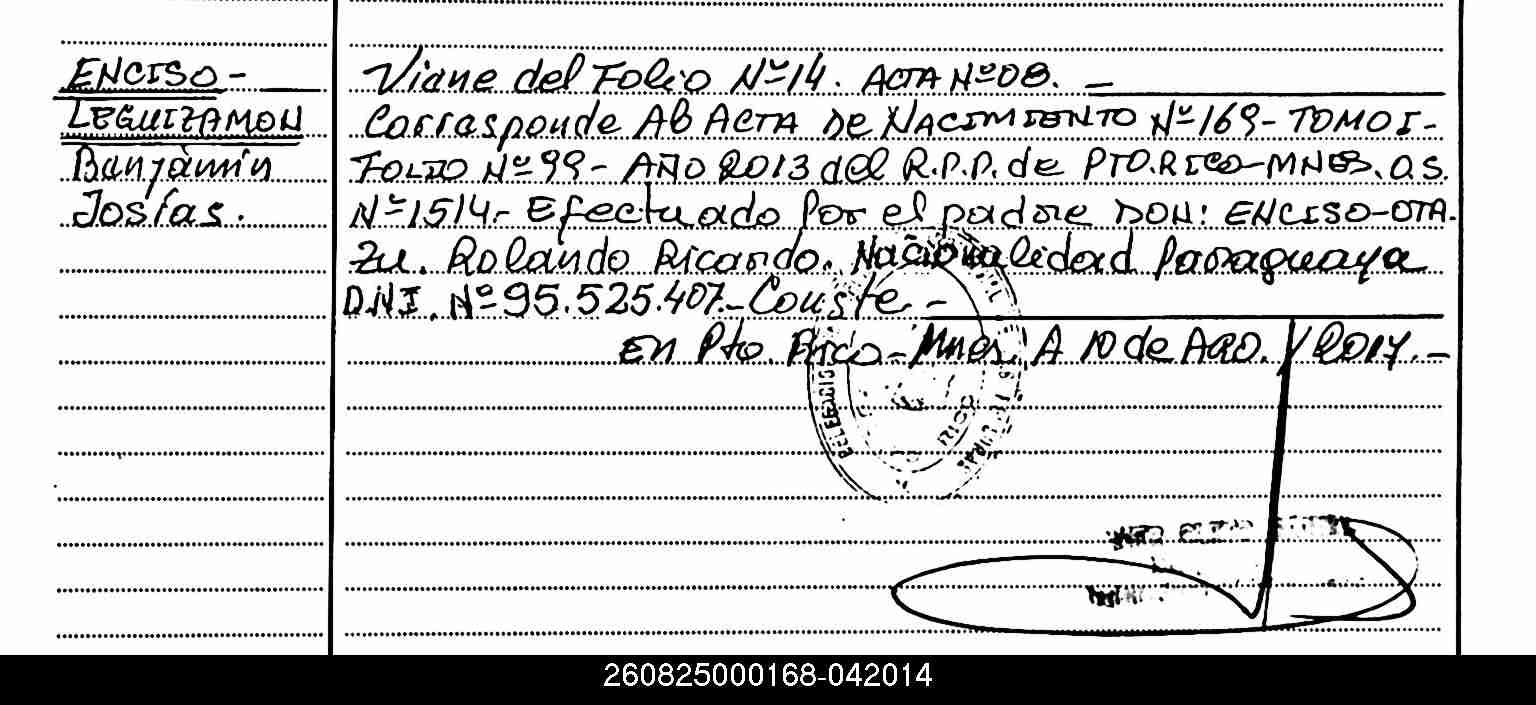 ENCISO-
LEGUIZAMON
Banjàmin
Josías.
Viane del Folio Nº14. ACTA Nº08. -
Corrasponde Al ACTA DE NACIMIENTO Nº169-TOMO I-
FOLIO Nº99- AÑO 2013 del R.P.P. de PTO.RICO-MNES. O.S.
Nº1514.- Efectuado Por el padre DON: ENCISO-OTA.
ZU. Rolando Ricardo. Nacionalidad Paraguaya
D.N.I. Nº95.525.407.-Conste.-
En Pto. Rico-Mnes. A 10 de AGO. / 2017.-
RICO
260825000168-042014